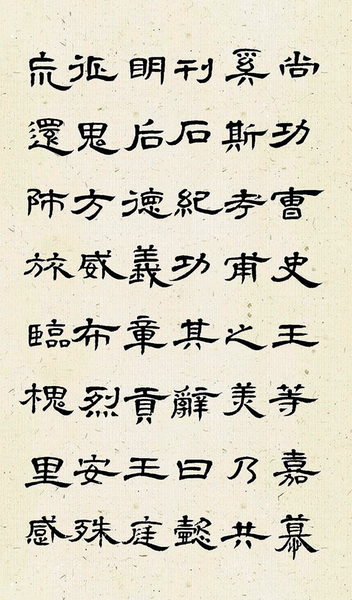 尚功曹史王等嘉慕
奚斯考甫之美乃共
刊石紀功其辭曰懿
明后德義章貢王庭
征鬼方威布烈安殊
巟還師旅臨槐里感